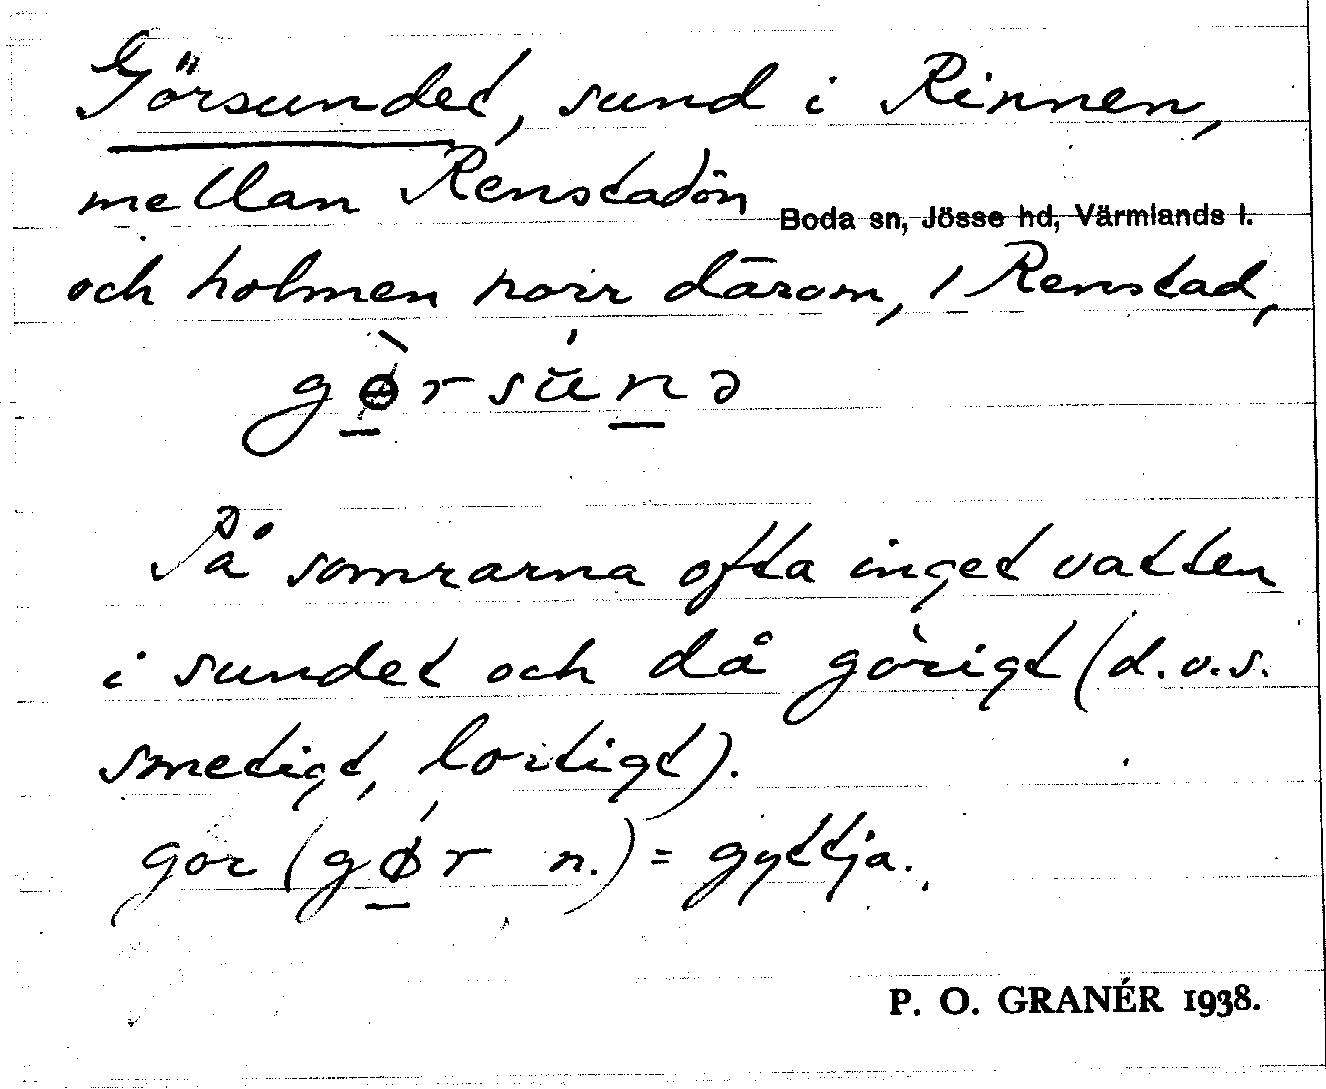 Görsundet, sund i Rinnen,
mellan Renstadön
Boda sn, Jösse hd, Värmlands l.
och holmen norr därom, 1 Renstad,
gø̀rsúnə
På somrarna ofta inget vatten
i sundet och då görigt (d.v.s.
smetigt, lortigt).
gor (gǿr n.) = gyttja.
P. O. GRANÉR 1938.